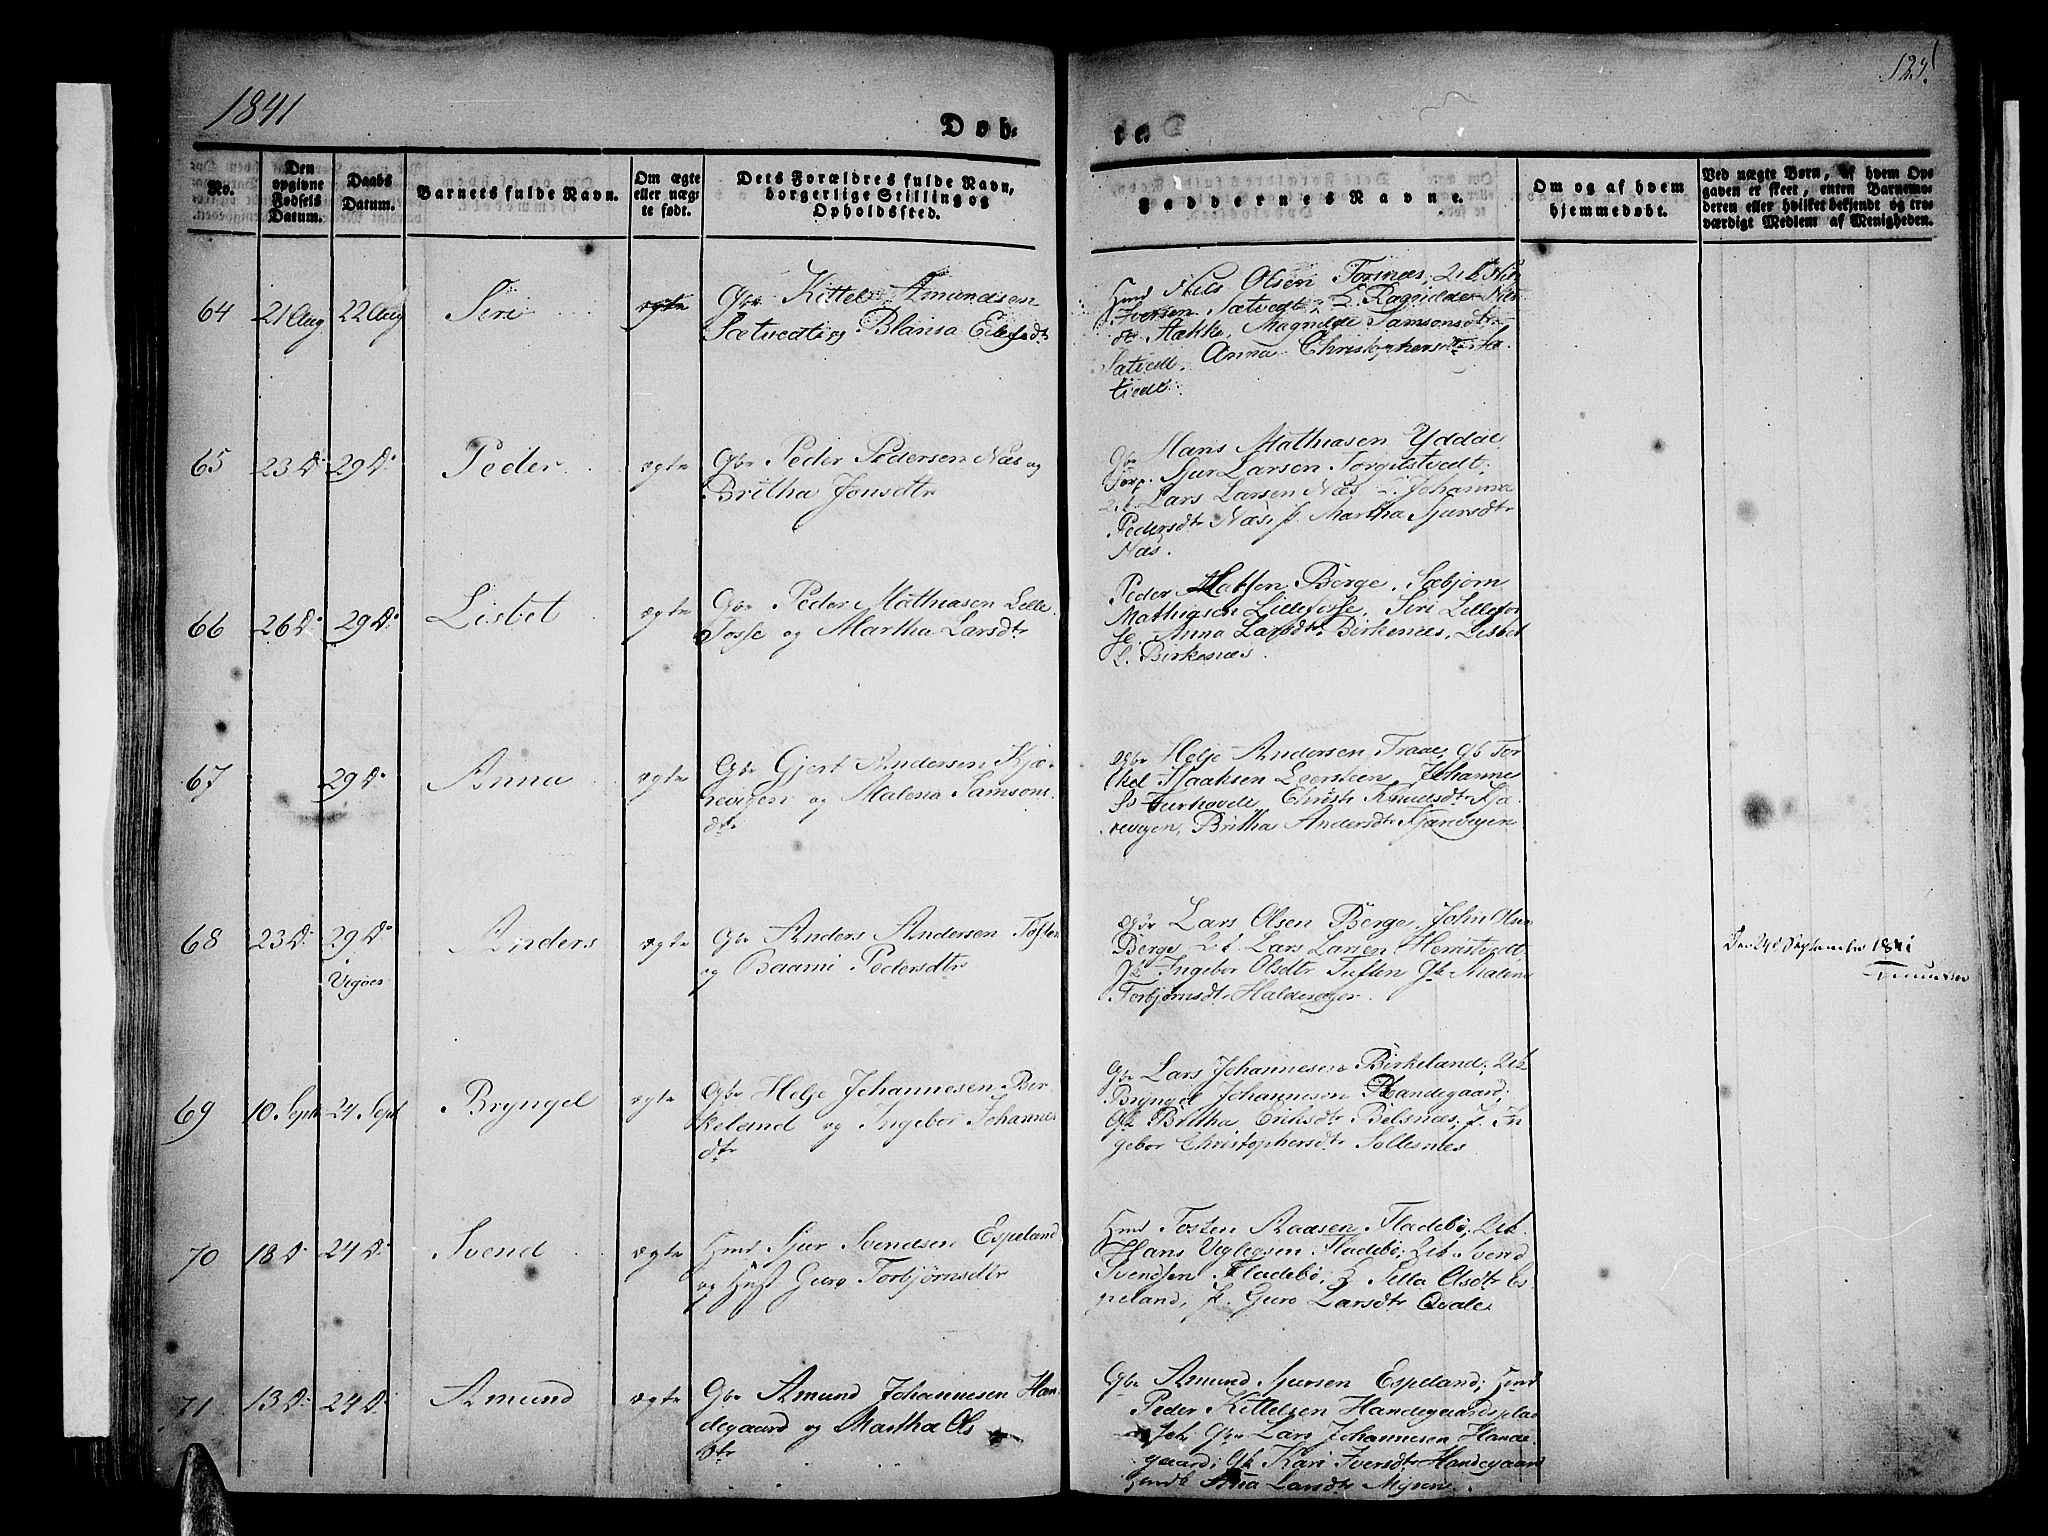 1841
121.
Døb-
te.
No.
Den
opgivne
Fødsels
Datum.
Daabs
Datum.
Barnets fulde Navn.
Om ægte
eller uæg-
te født.
Dets Forældres fulde Navn,
borgerlige Stilling og
Opholdssted.
Faddernes Navne.
Om og af hvem
hjemmedøbt.
Ved uægte Børn, af hvem Op-
gaven er skeet, enten Barnemo-
deren eller hvilket bekjendt og tro-
værdigt Medlem af Menigheden.
64 21 Aug 22 Aug Siri ægte Gbr Kittel Amundsen
Sætvedt og Blansa Eilefsdtr
Hmd Nils Olsen Tornæs, Ut.
Iversen Sætvedt,
Stække, Magnilde Samsonsdtr
Sætvedt, Anna Christophersdtr Sæ-
tvedt.
65 23 D: 29 D: Peder ægte Gbr Peder Pedersen Næs og
Britha Jonsdtr
Gbr Hans Mathiasen Yddal
Sjur Larsen Torgilstvedt,
Lars Larsen Næs, Johanna
Pedersdtr Næs, p. Martha Sjursdtr
Næs.
66 26 D: 29 D: Lisbet ægte Gbr Peder Mathiasen Lille
Fosse og Martha Larsdtr
Peder Berge, Sæbjørn
Mathiasen Lillefosse, Siri Lillefos
se, Anna Larsdtr Birkenæs, Lisbet
L. Birkenæs.
67 29 D: Anna ægte Gbr Gjert Andersen Kjæ-
revigen og Malena Samsons
dtr
Gbr Helje Andersen Traae, Gb Tor
kel Haaksen Johannes
Christi Knudsdtr Kjæ-
revigen, Britha Andersdtr Kjærevigen
68 23 D: 29 D: Anders ægte Gbr Anders Andersen Toften
Vigøes og Baarni Pedersdtr
Gbr Lars Olsen Berge, John Olsen
Berge, Lars Larsen Herristvedt
Ingebor Olsdtr Tuften Gk Malena
Torbjørnsdtr Haldorager.
Den September 1841
69 10 Septr 24 Septr Bryngel ægte Gbr Helje Johannesen Bir-
keland og Ingebor Johannes
dtr
Gbr Lars Johannesen Birkeland, Ut
Bryngel Johannesen Handegaard,
Gk Britha Eriksdtr Belsnæs, p. In-
gebor Christophersdtr Sollesnæs
70 18 D: 24 D: Svend ægte Hmd Sjur Svendsen Espeland
og Hust Guro Torbjørnsdtr
Hmd Tosten Aadsen Fladebø,
Hans Vigleysen Fladebø, Svend
Svendsen Fladebø, Sella Olsdtr Es
peland, p. Guro Larsdtr Qvale
71 13 D: 24 D: Amund ægte Gbr Amund Johannesen Han-
degaard og Martha Ols
dtr
Gbr Amund Sjursen Espeland, Hmd
Peder Kittelsen Handegaardsplad
Gbr Lars Johannesen Hande-
gaard, Gk Kari Iversdtr Handegaard
Larsdtr Myren.